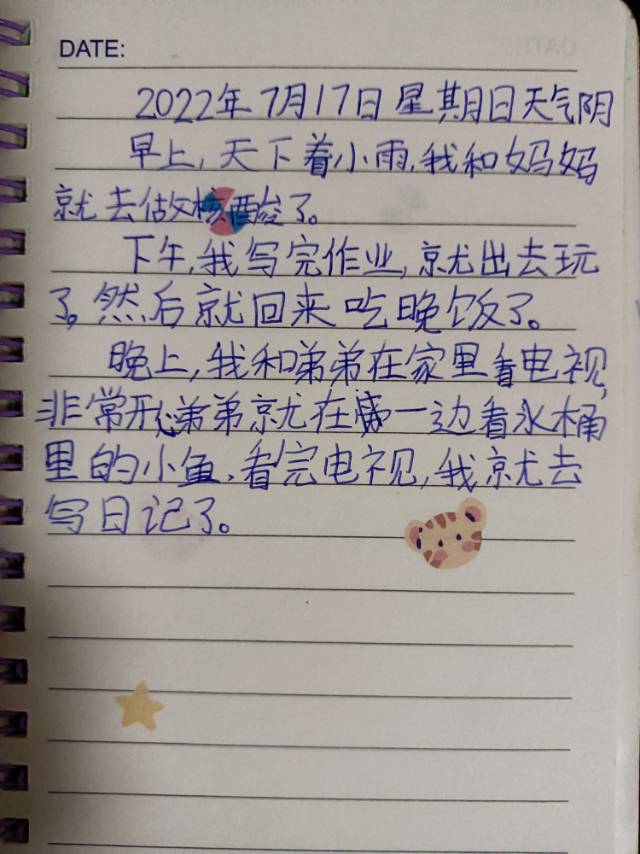 DATE:
2022年7月17日星期日天气阴
早上,天下着小雨,我和妈妈
就去做核酸了。
下午,我写完作业,就出去玩
了。然后就回来吃晚饭了。
晚上,我和弟弟在家里看电视,
非常开心弟弟就在一边看水桶
里的小鱼,看完电视,我就去
写日记了。